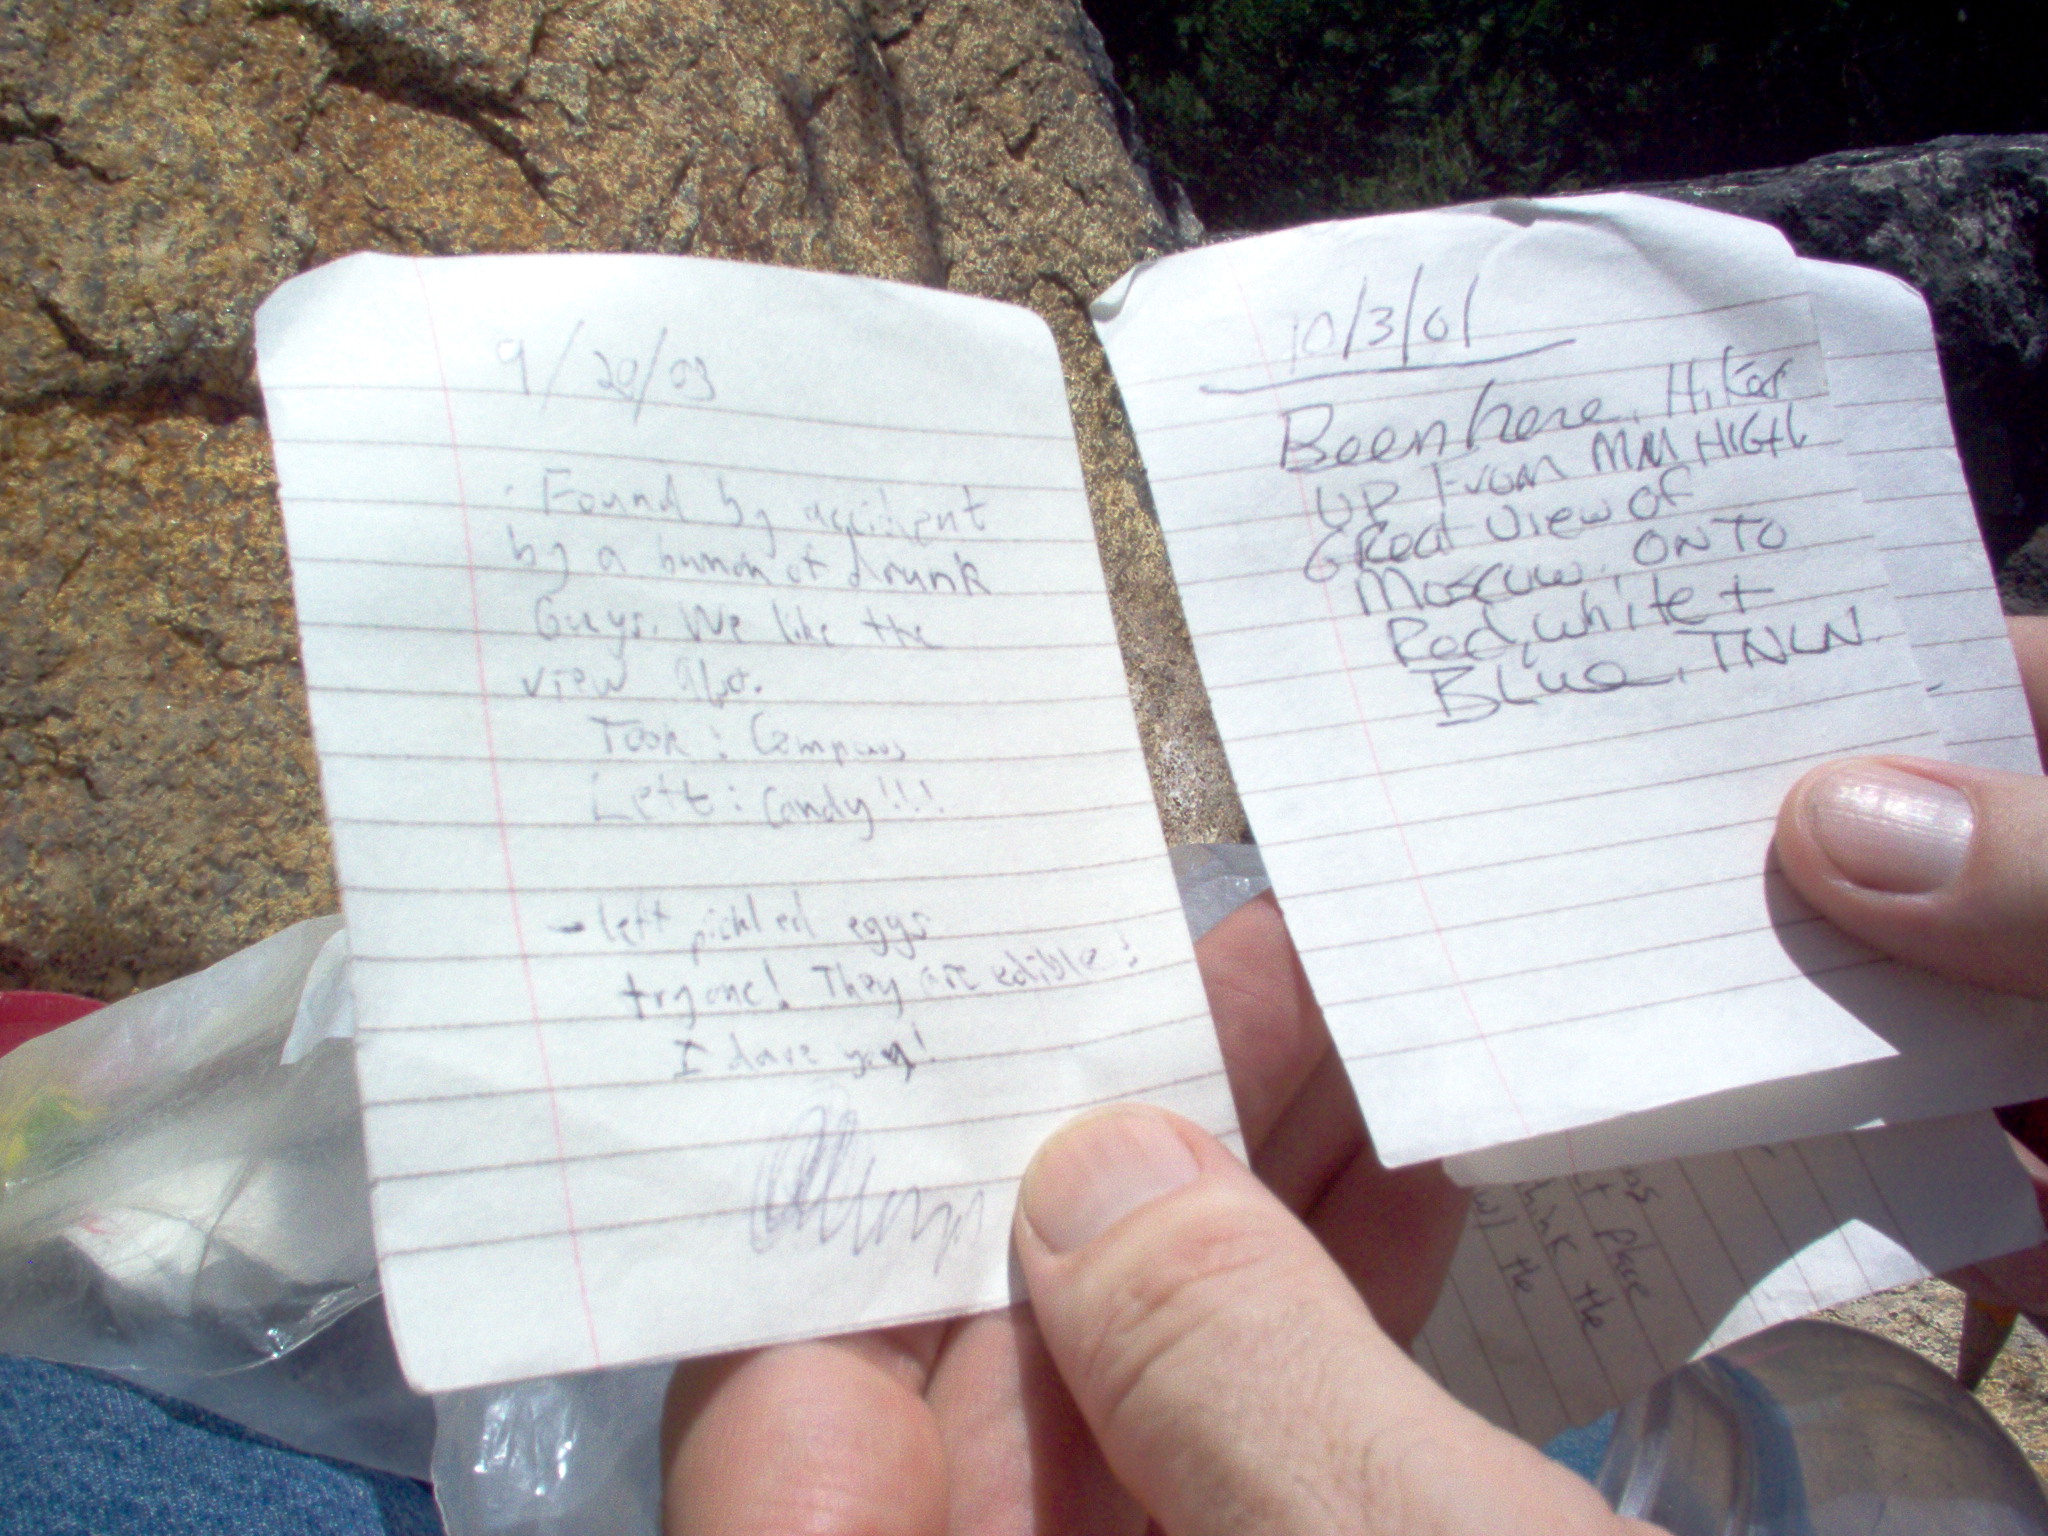 9/20/03
Found by accident
by a bunch of drunk
Guys. We like the
view also.
Took : Compass
Left : Candy!!!!
- left pickled eggs
try one! They are edible!
I dare you!
10/3/01
Been here. Hiked
up From MM HIGH
GReat View of
Moscow. ON TO
Red, white +
Blue. TNLN.
place
think the
w/ the